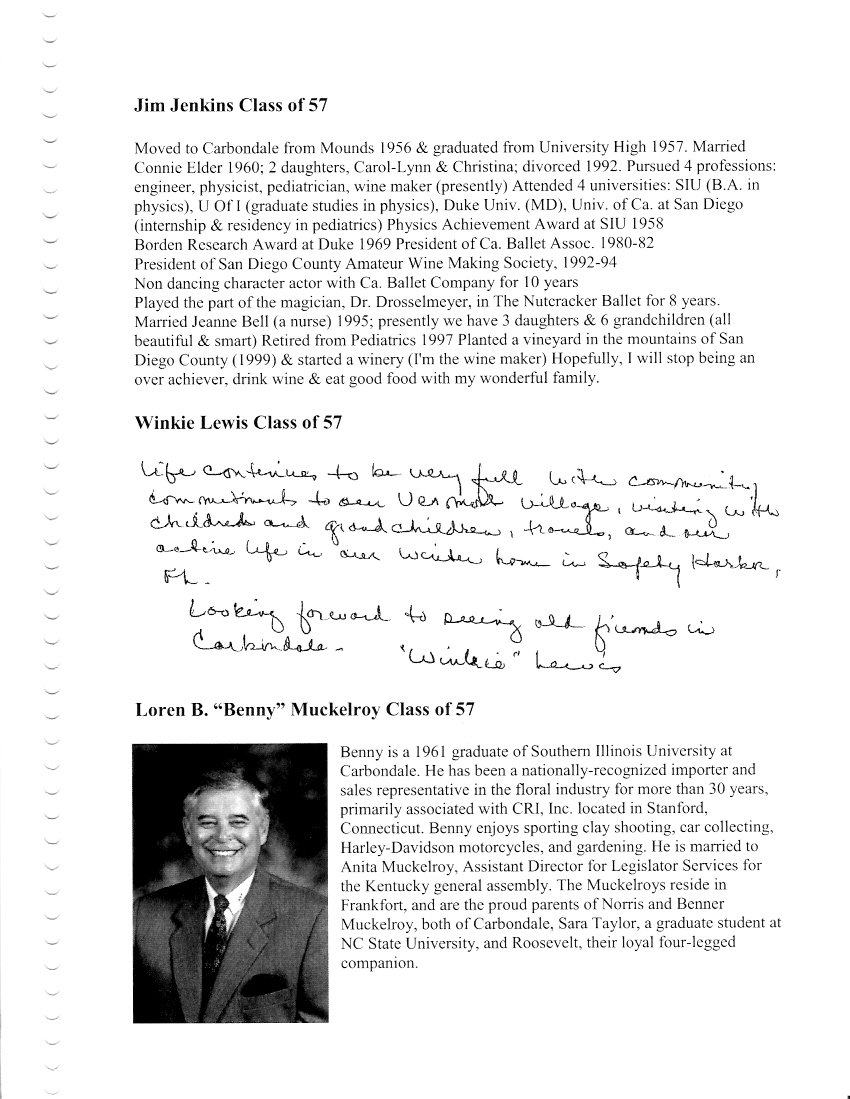 Jim Jenkins Class of 57
Moved to Carbondale from Mounds 1956 & graduated from University High 1957. Married
Connie Elder 1960; 2 daughters, Carol-Lynn & Christina; divorced 1992. Pursued 4 professions:
engineer, physicist, pediatrician, wine maker (presently) Attended 4 universities: SIU (B.A. in
physics), U Of I (graduate studies in physics), Duke Univ. (MD), Univ. of Ca. at San Diego
(internship & residency in pediatrics) Physics Achievement Award at SIU 1958
Borden Research Award at Duke 1969 President of Ca. Ballet Assoc. 1980-82
President of San Diego County Amateur Wine Making Society, 1992-94
Non dancing character actor with Ca. Ballet Company for 10 years
Played the part of the magician, Dr. Drosselmeyer, in The Nutcracker Ballet for 8 years.
Married Jeanne Bell (a nurse) 1995; presently we have 3 daughters & 6 grandchildren (all
beautiful & smart) Retired from Pediatrics 1997 Planted a vineyard in the mountains of San
Diego County (1999) & started a winery (I'm the wine maker) Hopefully, I will stop being an
over achiever, drink wine & eat good food with my wonderful family.
Winkie Lewis Class of 57
Life continues to be very full with community
commitments to our Vermont village, visiting with
children and grandchildren, travels, and our
active life in our winter home in Safety Harbor,
FL.
Looking forward to seeing old friends in
Carbondale.  "Winkie" Lewis
Loren B. “Benny” Muckelroy Class of 57
Benny is a 1961 graduate of Southern Illinois University at
Carbondale. He has been a nationally-recognized importer and
sales representative in the floral industry for more than 30 years,
primarily associated with CRI, Inc. located in Stanford,
Connecticut. Benny enjoys sporting clay shooting, car collecting,
Harley-Davidson motorcycles, and gardening. He is married to
Anita Muckelroy, Assistant Director for Legislator Services for
the Kentucky general assembly. The Muckelroys reside in
Frankfort, and are the proud parents of Norris and Benner
Muckelroy, both of Carbondale, Sara Taylor, a graduate student at
NC State University, and Roosevelt, their loyal four-legged
companion.